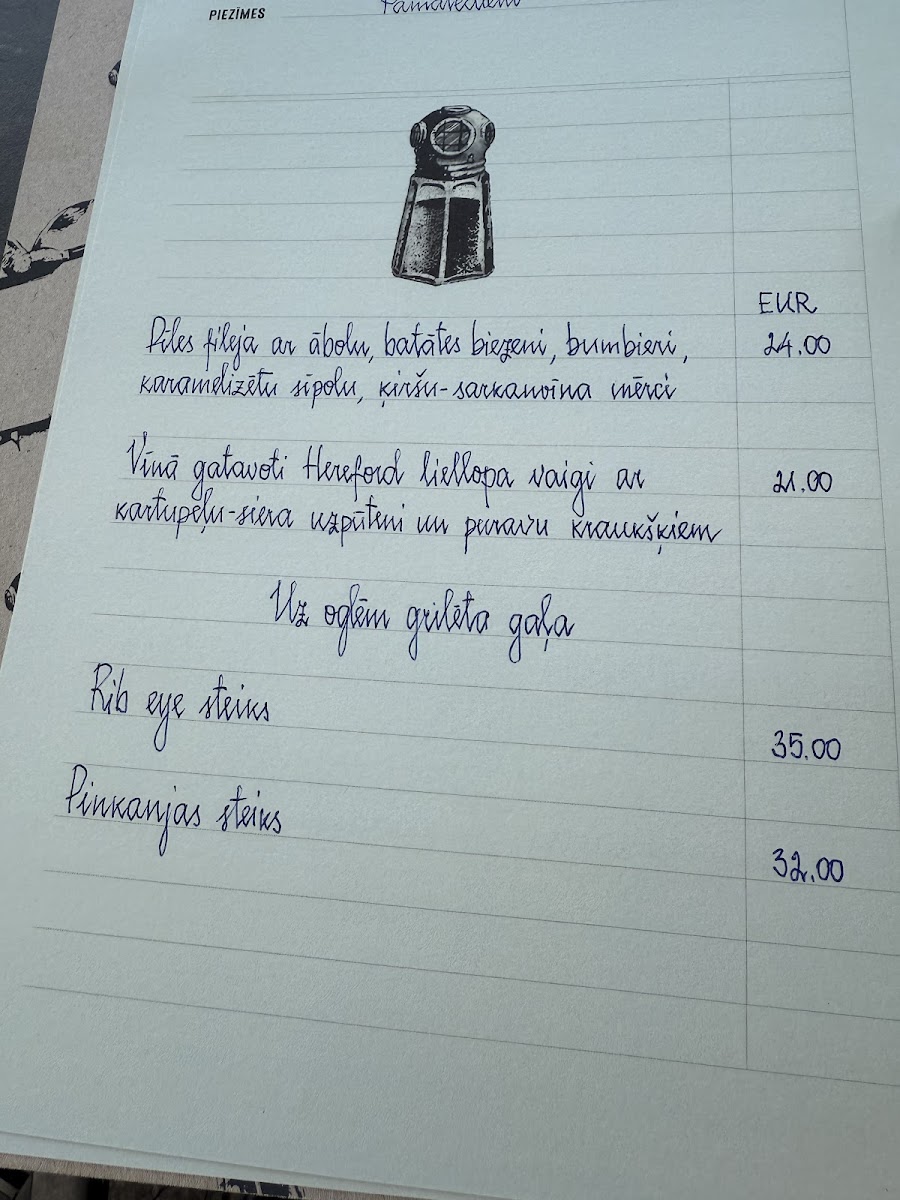 PIEZĪMES
Pamatēdieni
EUR
Pīles fileja ar ābolu, batātes biezeni, bumbieri, 24.00
karamelizētu sīpolu, ķiršu-sarkanvīna mērci
Vīnā gatavoti Hereford liellopa vaigi ar 21.00
kartupeļu-siera uzpūteni un puravu kraukšķiem
Uz oglēm grilēta gaļa
Rib eye steiks
35.00
Pinkanjas steiks
32.00